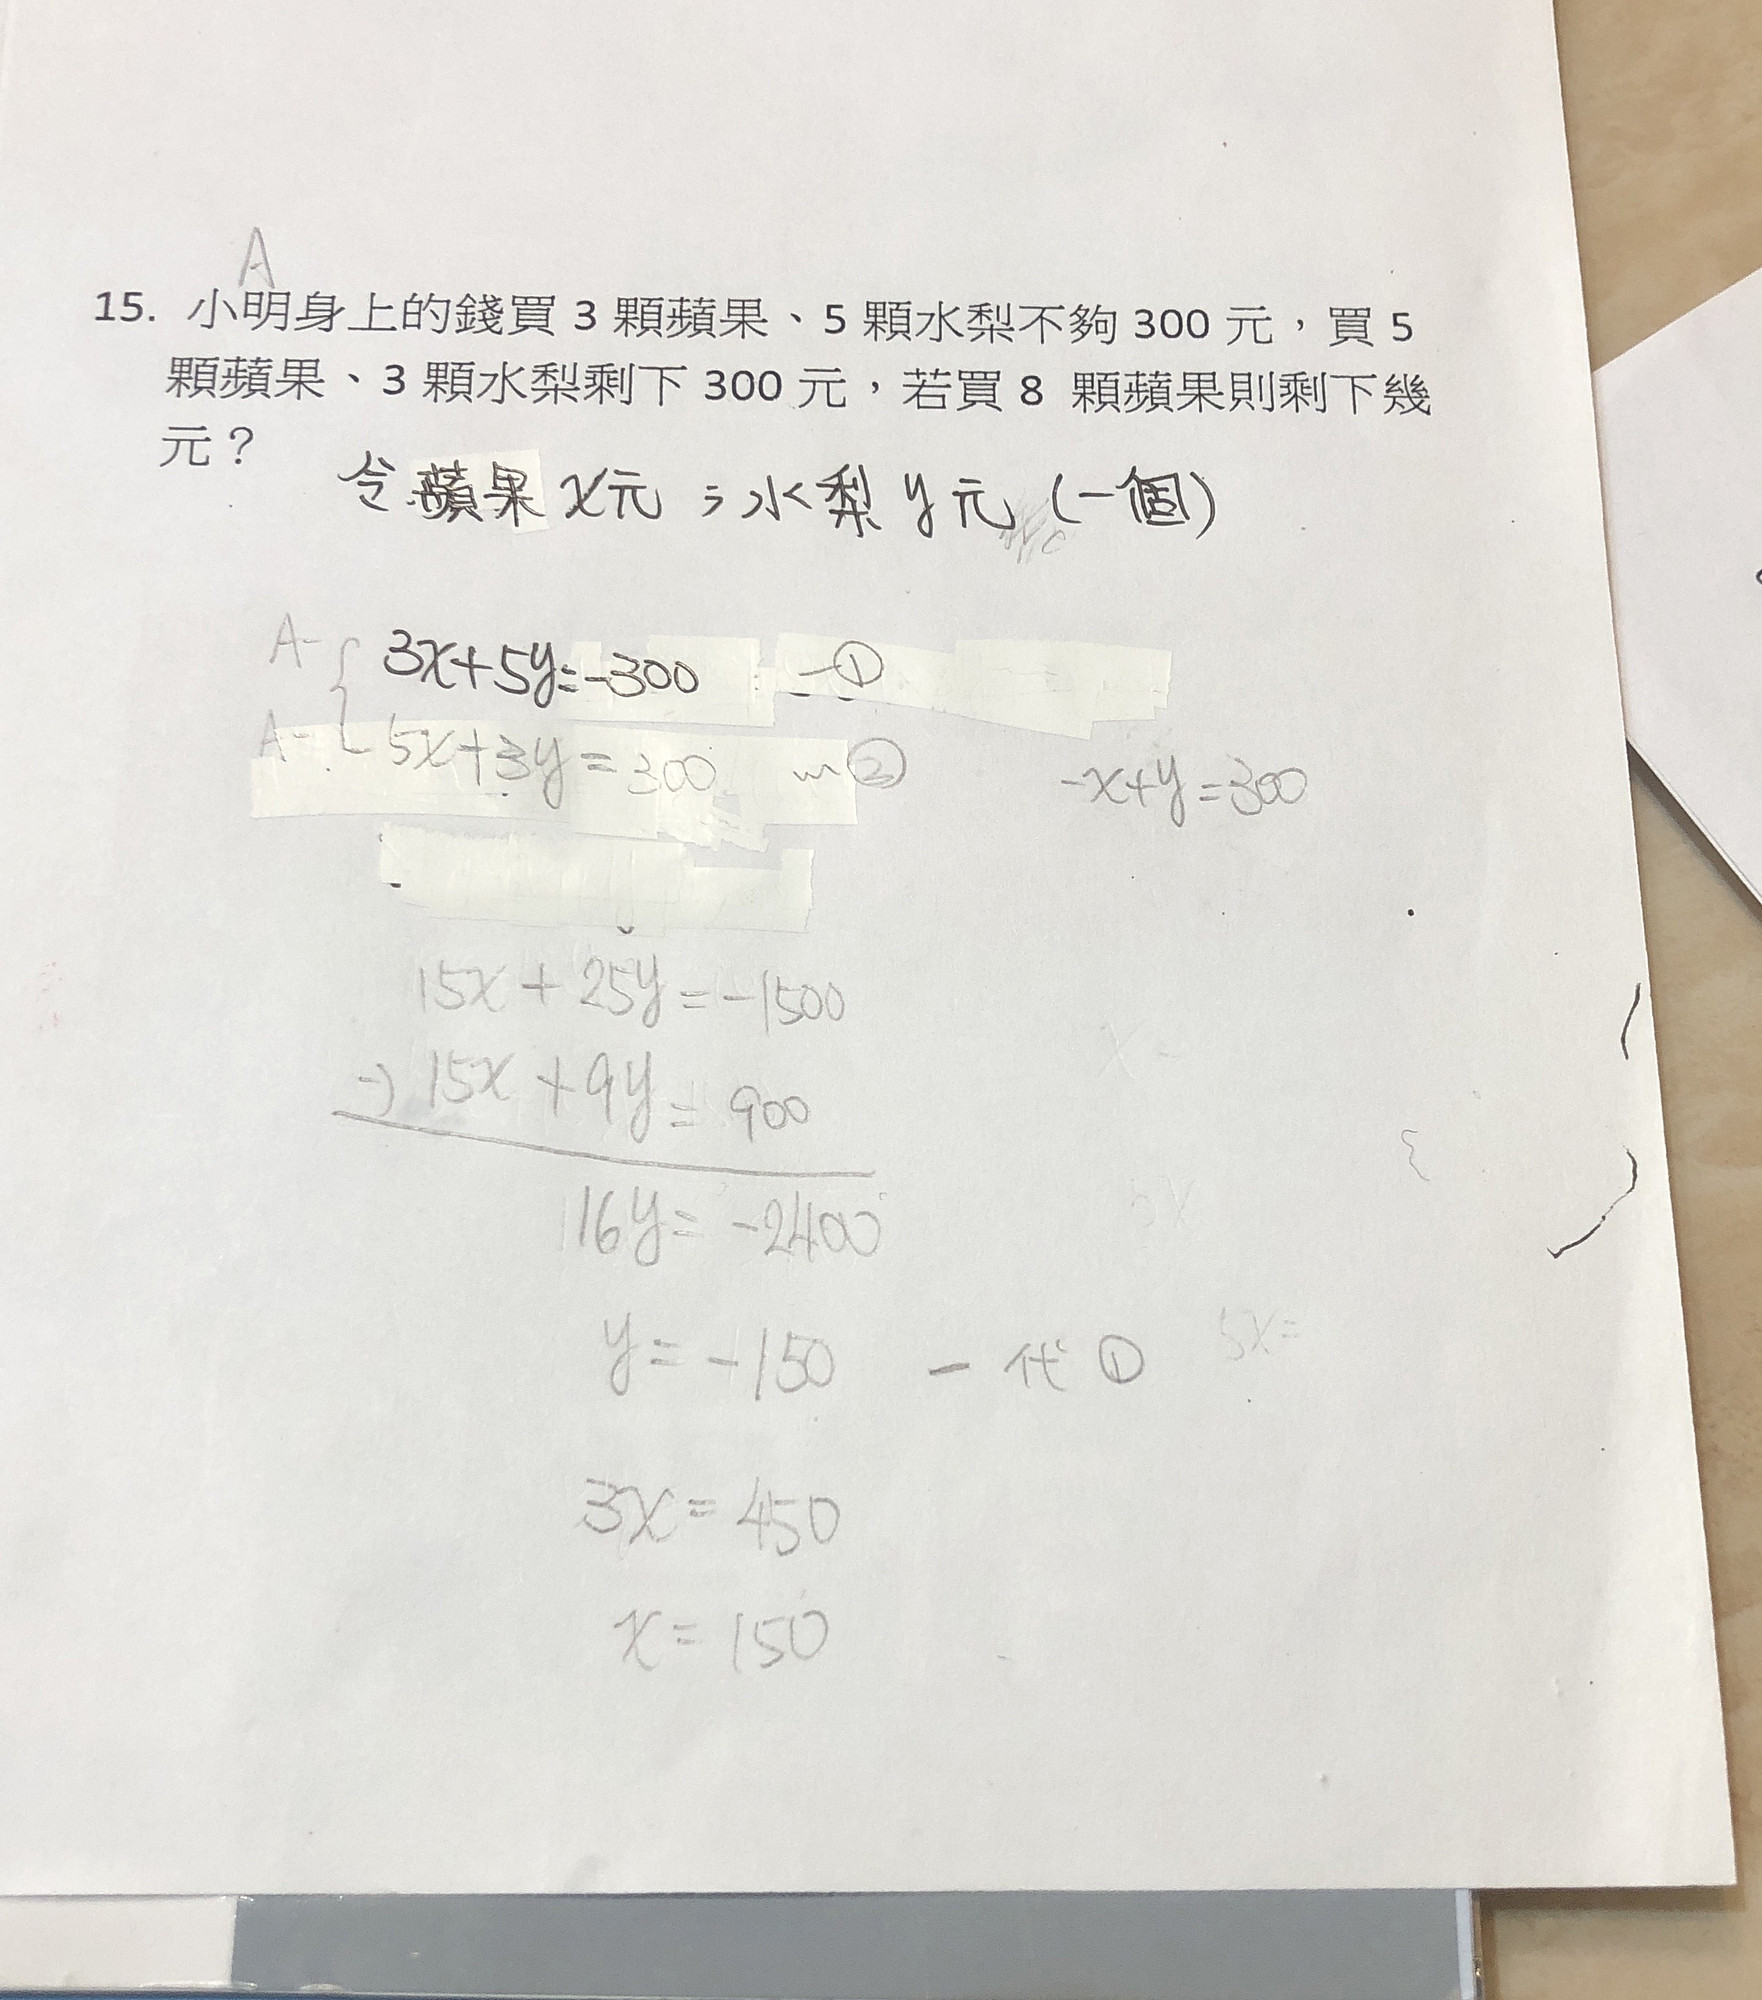 A
15. 小明身上的錢買 3 顆蘋果、5 顆水梨不夠 300 元，買 5
顆蘋果、3 顆水梨剩下 300 元，若買 8 顆蘋果則剩下幾
元？
令蘋果 x元；水梨 y元 (一個)
A- { 3x+5y=-300 -①
A- 5x+3y=300 ~②
-x+y=300
15x+25y=-1500
-) 15x+9y=900
16y=-2400
y=-150 - 代①
5x=
3x=450
x=150
x-
5x